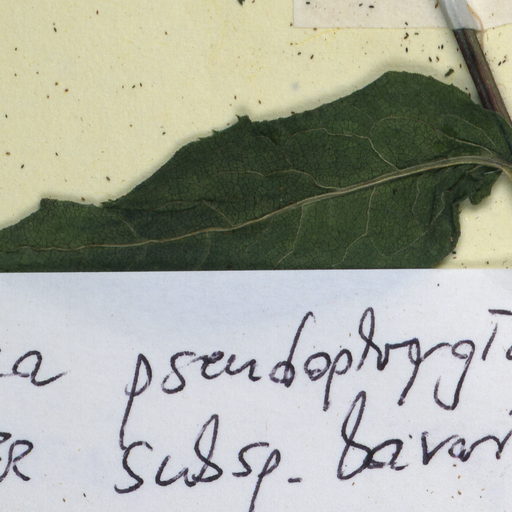 ea pseudophrygia
ER subsp. bavari